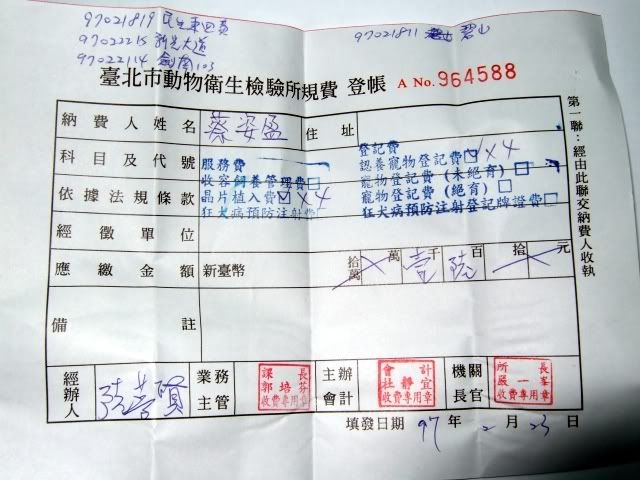 97021819 民生東四義
97022215 新光大道 97021811 碧山
97022114 劍南103
臺北市動物衛生檢驗所規費 登帳 A No. 964588
第一聯：經由此聯交納費人收執
納費人姓名 蔡姿盈 住址
科目及代號
服務費 登記費
認養寵物登記費☑x4
收容飼養管理費□ 寵物登記費(未絕育)□
依據法規條款 晶片植入費☑x4 寵物登記費(絕育)□
狂犬病預防注射費□ 狂犬病預防注射登記牌證費□
經徵單位
應繳金額 新臺幣 拾萬 萬 壹千 陸百 拾 元
備註
經辦人 業務主管 課長 郭培芬 收費專用章 主辦會計 會計 杜靜宜 收費專用章 機關長官 所長 嚴一峯 收費專用章
填發日期 97年 2月 23日